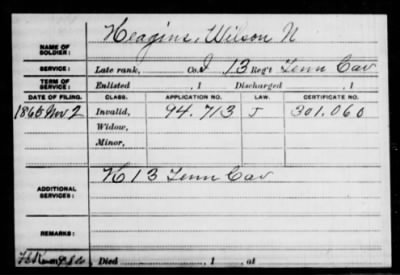 NAME OF SOLDIER: Heagins, Wilson N
SERVICE: Late rank, Co. I 13 Reg't Tenn Cav
TERM OF SERVICE: Enlisted , 1 Discharged , 1
DATE OF FILING. CLASS. APPLICATION NO. LAW. CERTIFICATE NO.
1865 Nov 2 Invalid, 94.713 J 301.060
Widow,
Minor,
ADDITIONAL SERVICES: K 13 Tenn Cav
REMARKS:
Died , 1 , at